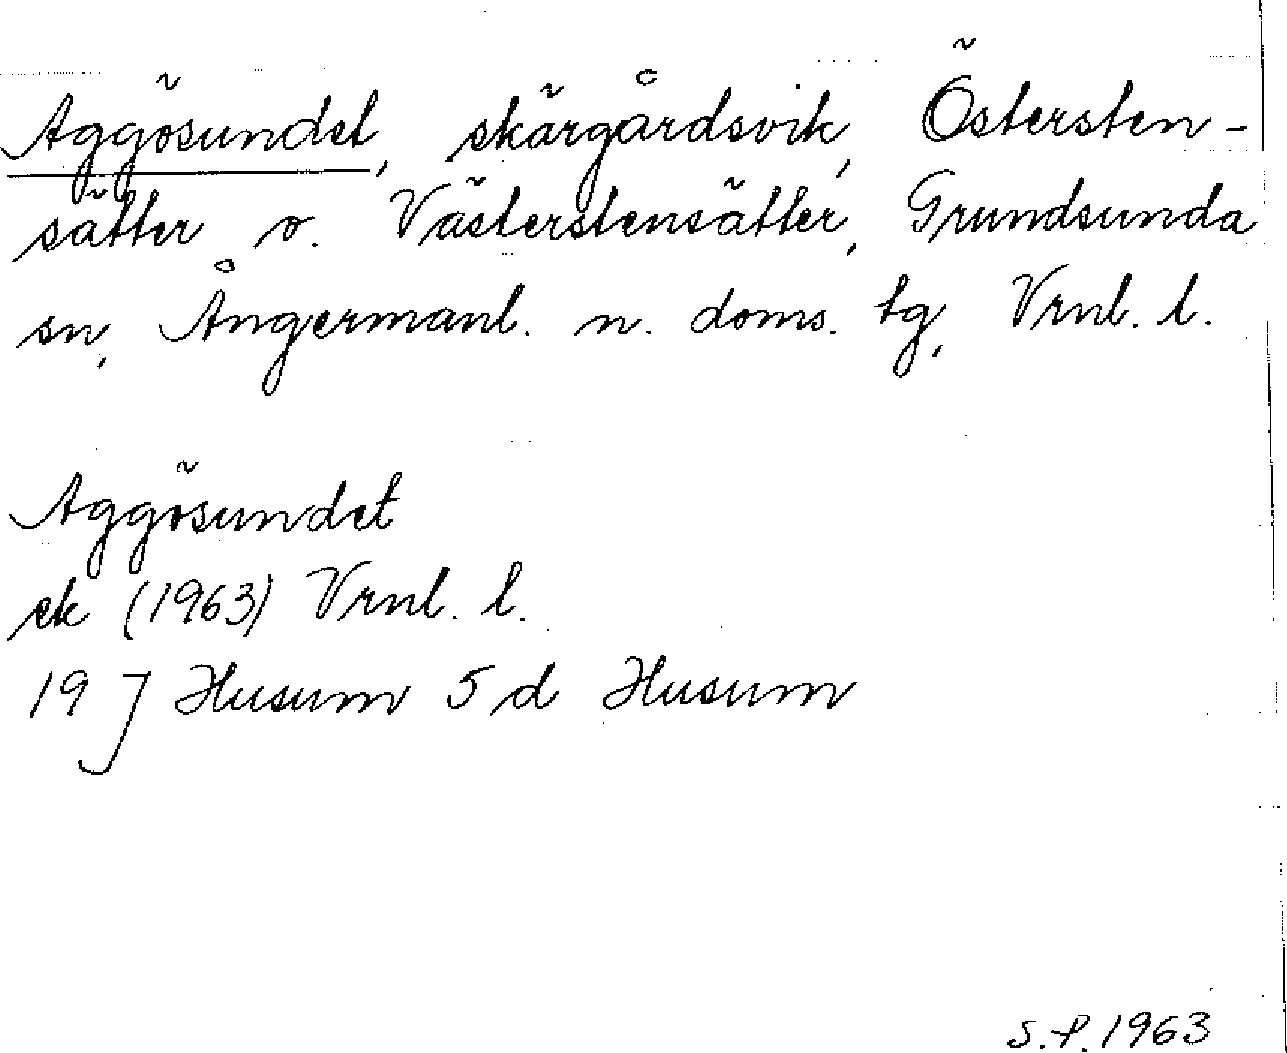 Aggösundet, skärgårdsvik, Östersten-
sätter o. Västerstensätter, Grundsunda
sn, Ångermanl. n. doms. tg, Vrnl. l.
Aggösundet
ek (1963) Vrnl. l.
19 J Husum 5 d Husum
S.P. 1963